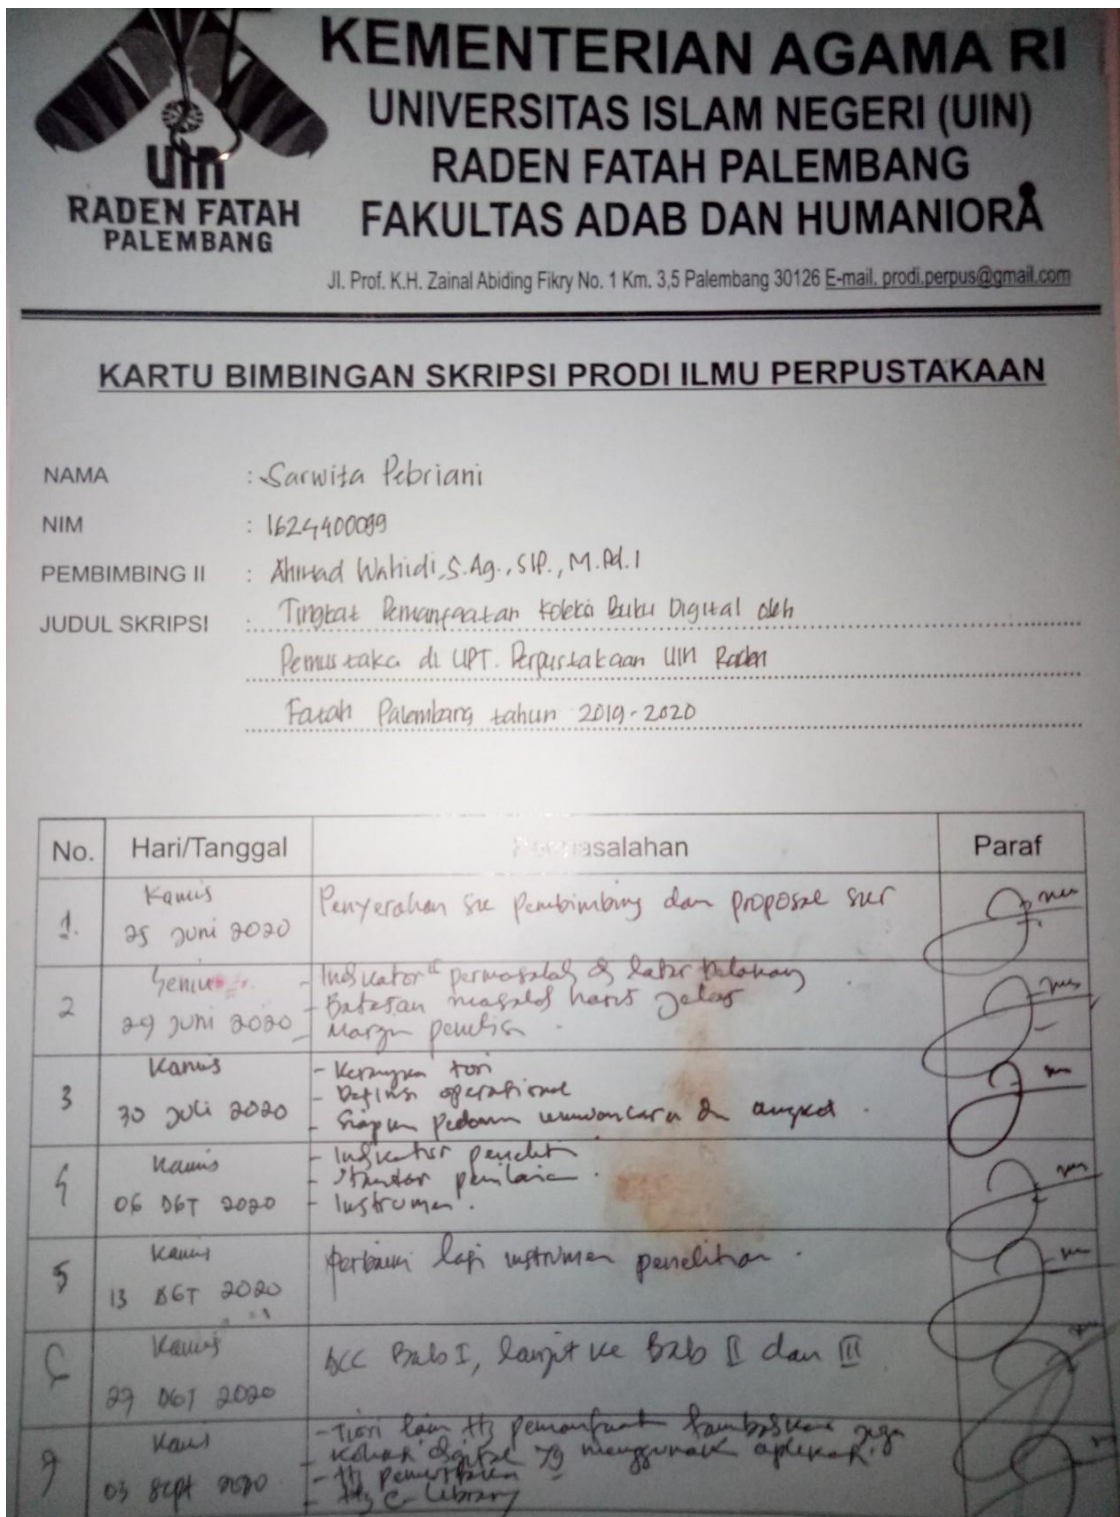 KEMENTERIAN AGAMA RI
UNIVERSITAS ISLAM NEGERI (UIN)
RADEN FATAH PALEMBANG
FAKULTAS ADAB DAN HUMANIORA
uin
RADEN FATAH
PALEMBANG
Jl. Prof. K.H. Zainal Abiding Fikry No. 1 Km. 3,5 Palembang 30126 E-mail. prodi.perpus@gmail.com
KARTU BIMBINGAN SKRIPSI PRODI ILMU PERPUSTAKAAN
NAMA : Sarwita Pebriani
NIM : 1624400099
PEMBIMBING II : Ahmad Wahidi, S.Ag., SIP., M.Pd.I
JUDUL SKRIPSI : Tingkat Pemanfaatan Koleksi Buku Digital oleh
Pemustaka di UPT. Perpustakaan UIN Raden
Fatah Palembang tahun 2019-2020
No. Hari/Tanggal Permasalahan Paraf
1. Kamis
25 Juni 2020
Penyerahan SK pembimbing dan proposal
2 Senin
29 Juni 2020
- Indikator permasalah latar belakang
- Batasan masalah harus jelas
- penelitian
3 Kamis
30 Juli 2020
- Kerangka teori
- Definisi operasional
- Siapkan pedoman wawancara dan angket.
4 Kamis
06 AGT 2020
- Indikator penelit
- Standar penilaian.
- Instrumen.
5 Kamis
13 AGT 2020
perbaiki lagi instrumen penelitian.
6 Kamis
27 AGT 2020
ACC Bab I, lanjut ke Bab II dan III
7 Kamis
03 Sept 2020
- Teori lain ttg pemanfaat tambahkan juga
- Koleksi digital yg menggunak aplikasi.
- ttg
- ttg e-Library